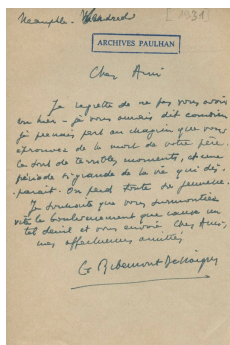 Neauphle - Vendredi [1931]
ARCHIVES PAULHAN
Cher Ami
Je regrette de ne pas vous avoir
vu hier - je vous aurais dit combien
je prenais part au chagrin que vous
éprouvez de la mort de votre père.
Ce sont de terribles moments, et une
période si grande de la vie qui dis-
paraît. On perd toute sa jeunesse.
Je souhaite que vous surmontiez
vite le bouleversement que cause un
tel deuil et vous envoie, cher Ami,
mes affectueuses amitiés
G. Ribemont Dessaignes